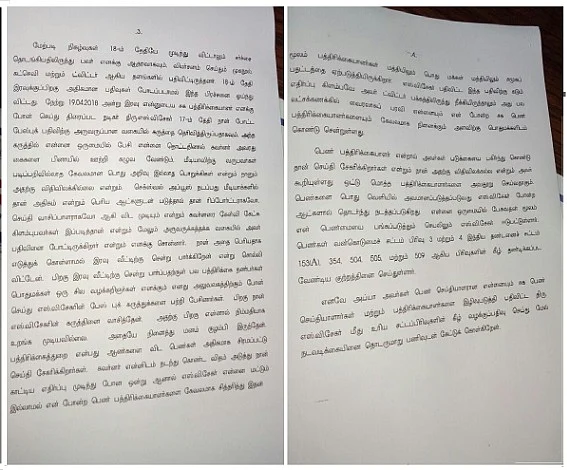 .3.
மேற்படி நிகழ்வுகள் 18-ம் தேதியே முடிந்து விட்டாலும் சர்ச்சை
தொடங்கியதிலிருந்து பலர் எனக்கு ஆதரவாகவும், விமர்சனம் செய்தும் முகநூல்
கட்செவி மற்றும் ட்விட்டர் ஆகிய தளங்களில் பதிவிட்டிருந்தனர். 18-ம் தேதி
இரவுக்குப்பிறகு அதிகமான பதிவுகள் போடப்படாமல் இந்த பிரச்சனை ஓய்ந்து
விட்டது. நேற்று 19.04.2018 அன்று இரவு என்னுடைய சக பத்திரிகையாளர் எனக்கு
போன் செய்து திரைப்பட நடிகர் திரு.எஸ்.விசேகர் 17-ம் தேதி நான் போட்ட
பேஸ்புக் பதிவிற்கு அருவருப்பான வகையில் கருத்து தெரிவித்திருப்பதாகவும் அந்த
கருத்தில் என்னை ஒருமையில் பேசி என்னை தொட்டதினால் கவர்னர் அவரது
கைகளை பினாயில் ஊற்றி கழுவ வேண்டும். மீடியாவிற்கு வருபவர்கள்
படிப்பறிவில்லாத கேவலமான பொது அறிவு இல்லாத பொறுக்கிகள் என்றும் நானும்
அதற்கு விதிவிலக்கில்லை என்றும். செக்ஸ்வல் அப்யூஸ் நடப்பது மீடியாக்களில்
தான் அதிகம் என்றும் பெரிய ஆட்களுடன் படுத்தால் தான் ரிப்போர்ட்டராகவோ,
செய்தி வாசிப்பாளராகவோ ஆகி விட முடியும் என்றும் கவர்னரை கேள்வி கேட்க
கிளம்புபவர்கள் இப்படித்தான் என்றும் மேலும் அருவருக்கத்தக்க வகையில் அவர்
பதிவினை போட்டிருக்கிறார் என்றும் எனக்கு சொன்னார். நான் அதை பெரியதாக
எடுத்துக் கொள்ளாமல் இரவு வீட்டிற்கு சென்று பார்க்கிறேன் என்று சொல்லி
விட்டேன். பிறகு இரவு வீட்டிற்கு சென்று பார்ப்பதற்குள் பல பத்திரிக்கை நண்பர்கள்
பொதுமக்கள் ஒரு சில வழக்கறிஞர்கள் எனக்கும் எனது அலுவலகத்திற்கும் போன்
செய்து எஸ்.விசேகரின் பேஸ் புக் கருத்துக்களை பற்றி பேசினார்கள். பிறகு நான்
எஸ்.விசேகரின் கருத்தினை வாசித்தேன். அதற்கு பிறகு என்னால் நிம்மதியாக
உறங்க முடியவில்லை. அதையே நினைத்து மனம் குழம்பி இருந்தேன்.
பத்திரிக்கைத்துறை என்பது ஆண்களை விட பெண்கள் அதிகமாக சிரமப்பட்டு
செய்தி சேகரிக்கிறார்கள். கவர்னர் என்னிடம் நடந்து கொண்ட விதம் அடுத்து நான்
காட்டிய எதிர்ப்பு முடிந்து போன ஒன்று ஆனால் எஸ்.விசேகர் என்னை மட்டும்
இல்லாமல் என் போன்ற பெண் பத்திரிக்கையாளர்களை கேவலமாக சித்தரித்து இதன்
.4.
மூலம் பத்திரிக்கையாளர்கள் மத்தியிலும் பொது மக்கள் மத்தியிலும் சமூகப்
பதட்டத்தை ஏற்படுத்தியிருக்கிறார். எஸ்.விசேகர் பதிவிட்ட இந்த பதிவிற்கு கடும்
எதிர்ப்பு கிளம்பவே அவர் ட்விட்டர் பக்கத்திலிருந்து நீக்கியிருந்தாலும் அது பல
லட்சக்கணக்கில் வைரலாகப் பரவி என்னையும் என் போன்ற சக பெண்
பத்திரிக்கையாளர்களையும் கேவலமாக நினைக்கும் அளவிற்கு பொதுமக்களிடம்
கொண்டு சென்றுள்ளது.
பெண் பத்திரிக்கையாளர் என்றால் அவர்கள் படுக்கையை பகிர்ந்து கொண்டு
தான் செய்தி சேகரிக்கிறார்கள் என்றும் நான் அதற்கு விதிவிலக்கல்ல என்றும் அவர்
கூறியுள்ளது ஒட்டு மொத்த பத்திரிகையாளர்களை அவதூறு செய்வதாகும்
பெண்களை பொது வெளியில் அவமானப்படுத்துவது எஸ்.விசேகர் போன்ற
ஆட்களால் தொடர்ந்து நடத்தப்படுகிறது. என்னை ஒருமையில் பேசுவதன் மூலம்
என் பெண்மையை பங்கப்படுத்தும் செயலிலும் எஸ்.விசேகர் ஈடுபட்டுள்ளார்.
பெண்கள் வன்கொடுமைச் சட்டம் பிரிவு 3 மற்றும் 4 இந்திய தண்டனைச் சட்டம்
153(A), 354, 504, 505 மற்றும் 509 ஆகிய பிரிவுகளின் கீழ் தண்டிக்கப்பட
வேண்டிய குற்றத்தினை செய்துள்ளார்.
எனவே அய்யா அவர்கள் பெண் செய்தியாளரான என்னையும் சக பெண்
செய்தியாளர்கள் மற்றும் பத்திரிக்கையாளர்களை இழிவுபடுத்தி பதிவிட்ட திரு
எஸ்.விசேகர் மீது உரிய சட்டப்பிரிவுகளின் கீழ் வழக்குப்பதிவு செய்து மேல்
நடவடிக்கையினை தொடருமாறு பணிவுடன் கேட்டுக் கொள்கிறேன்.